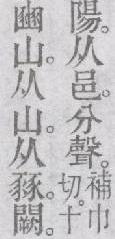 陽。从邑。分聲。補巾切。十
豳山。从山。从豩。闕。